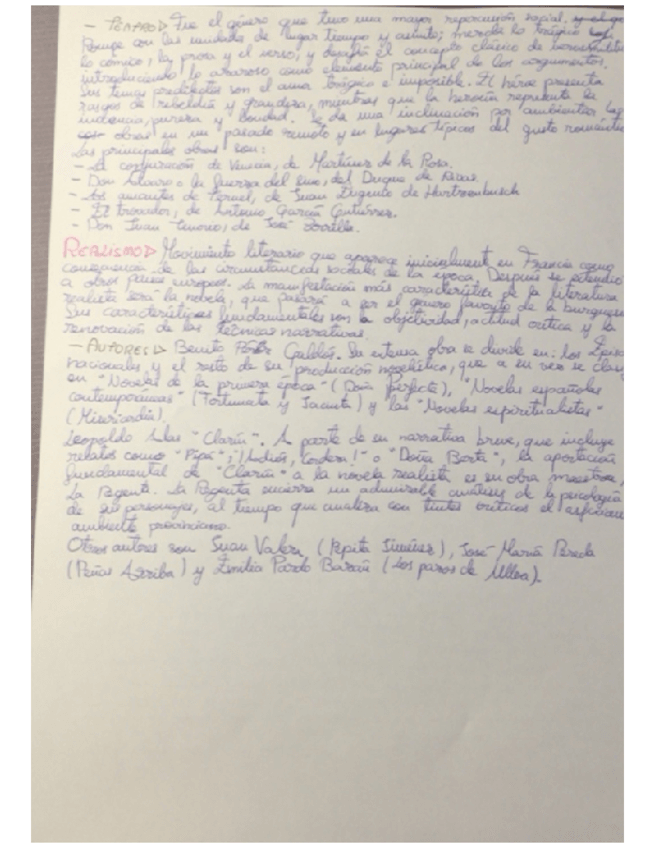 - TEATRO▷ Fue el género que tuvo una mayor repercusión social.
Rompe con las unidades de lugar tiempo y asunto; mezcla lo trágico
lo cómico, la prosa y el verso; y desafía el concepto clásico de
introduciendo lo azaroso como elemento principal de los argumentos.
Sus temas predilectos son el amor trágico e imposible. El héroe presenta
rasgos de rebeldía y grandeza, mientras que la heroína representa la
inocencia, pureza y bondad. Se da una inclinación por ambientar las
obras en un pasado remoto y en lugares típicos del gusto romántico
Las principales obras son:
- La conjuración de Venecia, de Martínez de la Rosa.
- Don Álvaro o la fuerza del sino, del Duque de Rivas.
- Los amantes de Teruel, de Juan Eugenio de Hartzenbusch
- El trovador, de Antonio García Gutiérrez.
- Don Juan Tenorio, de José Zorrilla.
REALISMO▷ Movimiento literario que aparece inicialmente en Francia como
consecuencia de las circunstancias sociales de la época. Después se extendió
a otros países europeos. La manifestación más característica de la literatura
realista será la novela, que pasará a ser el género favorito de la burguesía
Sus características fundamentales son la objetividad, actitud crítica y la
renovación de las técnicas narrativas.
- AUTORES▷ Benito Pérez Galdós. Su extensa obra se divide en: los
nacionales y el resto de su producción novelística, que a su vez se
en "Novelas de la primera época" (Doña Perfecta), "Novelas españolas
contemporáneas" (Fortunata y Jacinta) y las "Novelas espiritualistas"
(Misericordia).
Leopoldo Alas "Clarín". A parte de su narrativa breve, que incluye
relatos como "Pipá", "¡Adiós, Cordera!" o "Doña Berta", la aportación
fundamental de "Clarín" a la novela realista es su obra maestra,
La Regenta. La Regenta encierra un admirable análisis de la psicología
de sus personajes, al tiempo que analiza con tintes críticos el
ambiente provinciano.
Otros autores son Juan Valera (Pepita Jiménez), José María Pereda
(Peñas Arriba) y Emilia Pardo Bazán (Los pazos de Ulloa).